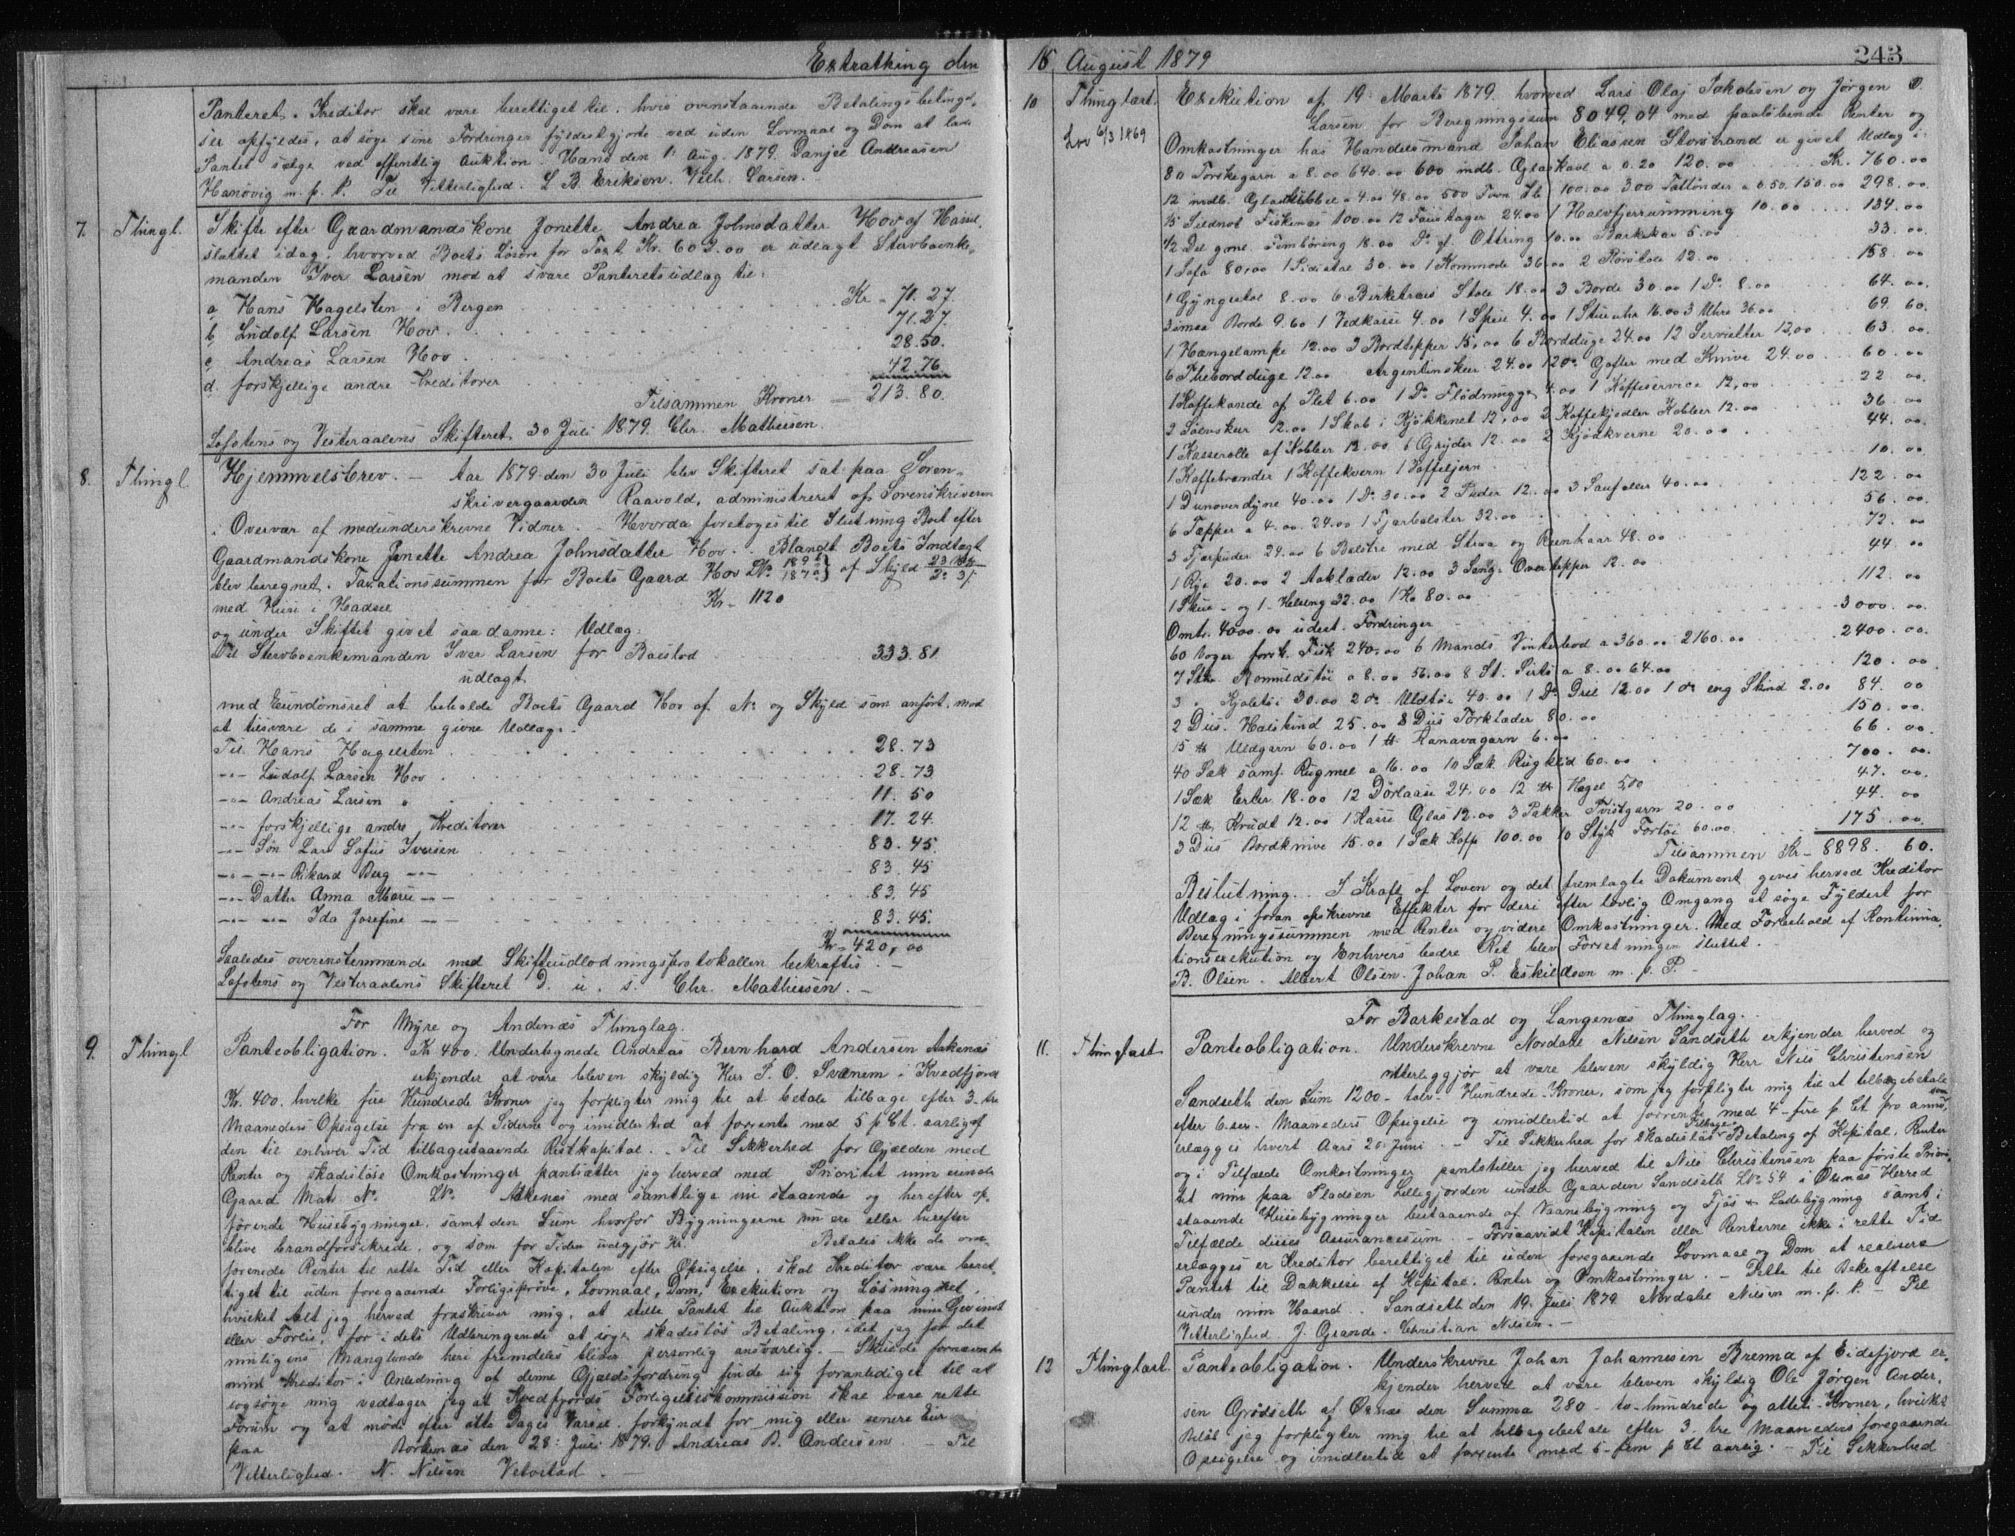 Extrathing den
Panteret. Kreditor skal være berettiget til, hvis ovenstaaende Betalingsbetingel-
ser opfyldes, at søge sine Fordringer fyldestgjorte ved uden Lovmaal og Dom at lade
Pantet sælge ved offentlig Auktion. Hans den 1 Aug. 1879. Danjel Andreasen
Hansvig m. p. P. Til Vitterlighed. L B. Eriksen. Vilh. Larsen.
7. Thingl. Skifte efter Gaardmandskone Jonette Andrea Johnsdatter Hov af Hadsel
sluttet idag, hvorved Boets Løsøre for Taxt Kr. 602.00 er udlagt Stervboenke-
manden Iver Larsen mod at svare Panteretsudlag til:
a, Hans Hagelsten i Bergen Kr. 71.27.
b, Ludolf Larsen Hov 71.27.
c, Andreas Larsen Hov 28.50.
d. forskjellige andre Kreditorer 42.76
Tilsammen Kroner 213.80.
Lofotens og Vesteraalens Skifteret 30 Juli 1879. Chr. Mathiesen.
8. Thingl. Hjemmelsbrev. – Aar 1879 den 30 Juli blev Skifteret sat paa Soren-
skrivergaarden Raavold, administreret af Sorenskriveren
i Overvær af medunderskrevne Vidner. – Hvorda foretoges til Slutning Boet efter
Gaardmandskone Jonette Andrea Johnsdatter Hov. Blandt Boets Indtægt
blev beregnet. Taxationssummen for Boets Gaard Hov LNo 189 187 af Skyld
med Huse i Hadsel Kr – 1120
og under Skiftet givet saadanne: Udlæg:
Til Stervboenkemanden Iver Larsen for Boeslod 333.81
udlagt
med Eiendomsret at beholde Boets Gaard Hov af No og Skyld som anført, mod
at tilsvare de i samme givne Udlæg.
Til Hans Hagelsten 28.73
–"– Ludolf Larsen Hov 28.73
–"– Andreas Larsen " 11.50
–"– forskjellige andre Kreditorer 17.24
–"– Søn Lars Sofus Iversen 83.45
–"– –"– Rikard Berg –"– 83.45
–"– Datter Anna Marie –"– 83.45
–"– –"– Ida Josefine –"– 83.45.
Kr – 420,00
Saaledes overensstemmende med Skifteudlodningsprotokollen bekræftes. –
Lofotens og Vesteraalens Skifteret D. u. s. Chr. Mathiesen. –
For Myre og Andenæs Thinglag.
9. Thingl Panteobligation. Kr 400. Undertegnede Andreas Bernhard Andersen Aakenæs
erkjender at være bleven skyldig Herr P. O. Svanem i Kvedfjord
Kr. 400. hvilke fire Hundrede Kroner jeg forpligter mig til at betale tilbage efter 3 tre
Maaneders Opsigelse fra en af Siderne og imidlertid at forrente med 5 p Ct. aarlig af
den til enhver Tid tilbagestaaende Restkapital. – Til Sikkerhed for Gjælden med
Renter og skadesløse Omkostninger pantsætter jeg herved med Prioritet min eiende
Gaard Mat No. LNo. Aakenæs med samtlige nu staaende og herefter op-
førende Husebygninger, samt den Sum hvorfor Bygningerne nu ere eller herefter
blive brandforsikrede, og som for Tiden udgjør Kr. Betales ikke de om-
førende Renter til rette Tid eller Kapitalen efter Opsigelse, skal Kreditor være beret-
tiget til uden foregaaende Forligsprøve, Lovmaal, Dom, Exekution og Løsningsret,
hvilket Alt jeg herved fraskriver mig, at stille Pantet til Auktion paa min Gevinst
eller Forlis, for i dets Udbringende at søge skadesløs Betaling, idet jeg for det
muligens Manglende heri fremdeles bliver personlig ansvarlig. – Skulde fornævnte
min Kreditor i Anledning af denne Gjældsfordring finde sig foranlediget til at
søgsøge mig vedtager jeg at Kvedfjords Forligelseskommission skal være rette
Forum og at møde efter otte Dages Varsel, forkyndt for mig eller senere Eier
paa Borkenæs den 28 Juli 1879. Andreas B. Andersen – Til
Vitterlighed. N. Nilsen Vetvstad. –
16 August 1879
243
10 Thinglæst. Lov 6/3 1869 Exekution af 19 Marts 1879 hvorved Lars Olaj Jakobsen og Jørgen O.
Larsen for Beregningssum 8049,04 med paaløbende Renter og
Omkostninger hos Handelsmand Johan Eliassen Storstrand er givet Udlæg i:
80 Torskegarn a 8.00 640.00 600 indb. Glaskavl a 0.20 120.00 Kr. 760.00
12 indb. a 4.00 48.00 500 100.00 300 Tattønder a 0.50. 150.00 298.00.
/5 Sildnot Fiskenæs 100.00 12 24.00 1 Halvfjerrumming 10.00 134.00
1/2 Del gml. Fembøring 18.00 Do af Ottring 10.00 Barkekar 5.00 33.00.
1 Sofa 80,00 1 Pidistal 30.00 1 Kommode 36.00 2 Rørstole 12.00 158.00
1 Gyngestol 8.00 6 Birketræs Stole 18.00 3 Borde 30.00 1 Do 8.00 64.00.
3 smaa Borde 9.60 1 Vedkasse 4.00 1 Speil 4.00 1 Stueuhr 16.00 3 Uhre 36.00 69.60.
1 Hængelampe 12.00 3 Bordtepper 15,00 6 Bordduge 24.00 12 Servietter 12,00 63.00.
6 Thebordduge 12.00 Argentinskeer 24.00 12 do Gafler med Knive 24.00 60.00
1 Kaffekande af Plet 6.00 1 Do Flødmugge 4.00 1 Kaffeservice 12,00 22.00.
2 Sølvskeer 12.00 1 Skab i Kjøkkenet 12,00 2 Kaffekjedler Kobber 12.00 36.00
1 Kasserolle af Kobber 12.00 6 Gryder 12.00 2 Kjødkverne 20.00 44.00.
1 Kaffebrænder 1 Kaffekvern 1 Vaffeljern 10.00
1 Dunoverdyne 40.00 1 Do 30.00 2 Puder 12.00 3 Saufeller 40.00 122.00
6 Tæpper a 4.00 24.00 1 Fjærbolster 32.00 56.00.
3 Fjærpuder 24.00 6 Bolstre med Straa og Reenhaar 48.00 72.00
1 Rye 20.00 2 Aaklæder 12.00 3 Senge Overtepper 12.00 44.00
1 Skue- og 1 Helseng 32.00 1 Ko 80.00 112.00
Omtr. 4000.00 udest. Fordringer 3000.00.
60 Voger forsk. Fisk 240,00 6 Mands Vinterbod a 360.00 2160.00 2400.00.
7 Stkr. Bomuldstøi a 8.00 56.00 8 St. Sirts a 8.00 64.00 120.00
3 " Kjoletøi 30.00 2 do Uldtøi 40.00 1 Do Dril 12.00 1 do eng Skind 2.00 84.00
2 Dus. Halskind 25.00 8 Dus Tørklæder 80.00 150.00
15 ℔ Uldgarn 60.00 1 ℔ Kanavagarn 6.00 66.00.
40 Sæk samf. Rugmel a 16.00 10 Sæk Rugklid 60.00 700.00.
1 Sæk Erter 18.00 12 Dørlaase 24.00 12 ℔ Hagel 5,00 47.00.
12 ℔ Krudt 12.00 1 Kasse Glas 12.00 3 Pakker Tvistgarn 20.00 44.00
3 Dus Bordknive 15.00 1 Sæk Kaffe 100.00 10 Styk Fortøi 60.00. 175.00.
Tilsammen Kr – 8898.60.
Beslutning. I Kraft af Loven og det fremlagte Dokument gives herved Kreditor
Udlæg i foran opskrevne Effekter for deri efter lovlig Omgang at søge Fyldest for
Beregningssummen med Renter og videre Omkostninger. Med Forbehold af Kontinua-
tionsexekution og Enhvers bedre Ret blev Forretningen sluttet. –
B. Olsen. Albert Olsen. Johan P. Eskildsen m. p. P. –
For Barkestad og Langenæs Thinglag.
11. Thinglæst Panteobligation. Underskrevne Nordahl Nilsen Sandseth erkjender herved og
vitterliggjør at være bleven skyldig Herr Nils Christensen
Sandseth den Sum 1200 – tolv – Hundrede Kroner, som jeg forpligter mig til at tilbagebetale
efter 6. sex Maaneders Opsigelse og imidlertid at forrente med 4 – fire p Ct pro anno, som
erlægges hvert Aars 20 Juni. – Til Sikkerhed for skadesløs Tilbage Betaling af Kapital, Renter
og i Tilfælde Omkostninger pantstiller jeg herved til Nils Christensen paa første Priori-
tet min paa Pladsen Lillegjorden under Gaarden Sandseth LNo 54 i Øxnæs Herred
staaende Husebygninger bestaaende af Vaanebygning og Fjøs & Ladebygning samt i
Tilfælde disses Assurancesum. – Forsaavidt Kapitalen eller Renterne ikke i rette Tid
erlægges er Kreditor berettiget til uden foregaaende Lovmaal og Dom at realisere
Pantet til Dækkelse af Kapital, Renter og Omkostninger. – Dette til Bekræftelse
under min Haand. Sandseth den 19. Juli 1879 Nordahl Nilsen m. p. P. – Til
Vitterlighed J. Grande. Christian Nilsen. –
12 Thinglæst. Panteobligation. Underskrevne Johan Johannesen Brenna af Eidsfjord er-
kjender herved at være bleven skyldig Ole Jørgen Ander-
sen Grødseth af Øxnæs den Summa 280 – to-hundrede og otteti Kroner, hvilke
Beløb jeg forpligter mig til at tilbagebetale efter 3. tre Maaneders foregaaende
Opsigelse og imidlertid at forrente med 5 – fem p Ct aarlig. – Til Sikkerhed